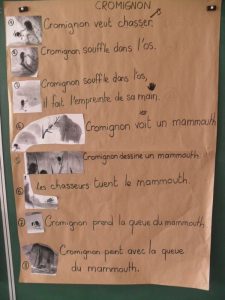 CROMIGNON
① Cromignon veut chasser.
② Cromignon souffle dans l'os.
③ Cromignon souffle dans l'os,
Il fait l'empreinte de sa main.
④ Cromignon voit un mammouth
⑤ Cromignon dessine un mammouth.
⑥ Les chasseurs tuent le mammouth.
⑦ Cromignon prend la queue du mammouth.
⑧ Cromignon peint avec la queue
du mammouth.